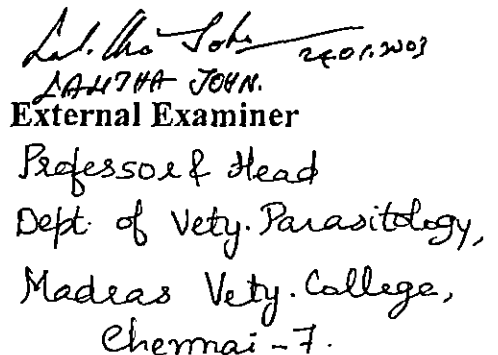 Lalitha John 24.01.2003
LALITHA JOHN.
External Examiner
Professor & Head
Dept. of Vety. Parasitology,
Madras Vety. College,
Chennai - 7.